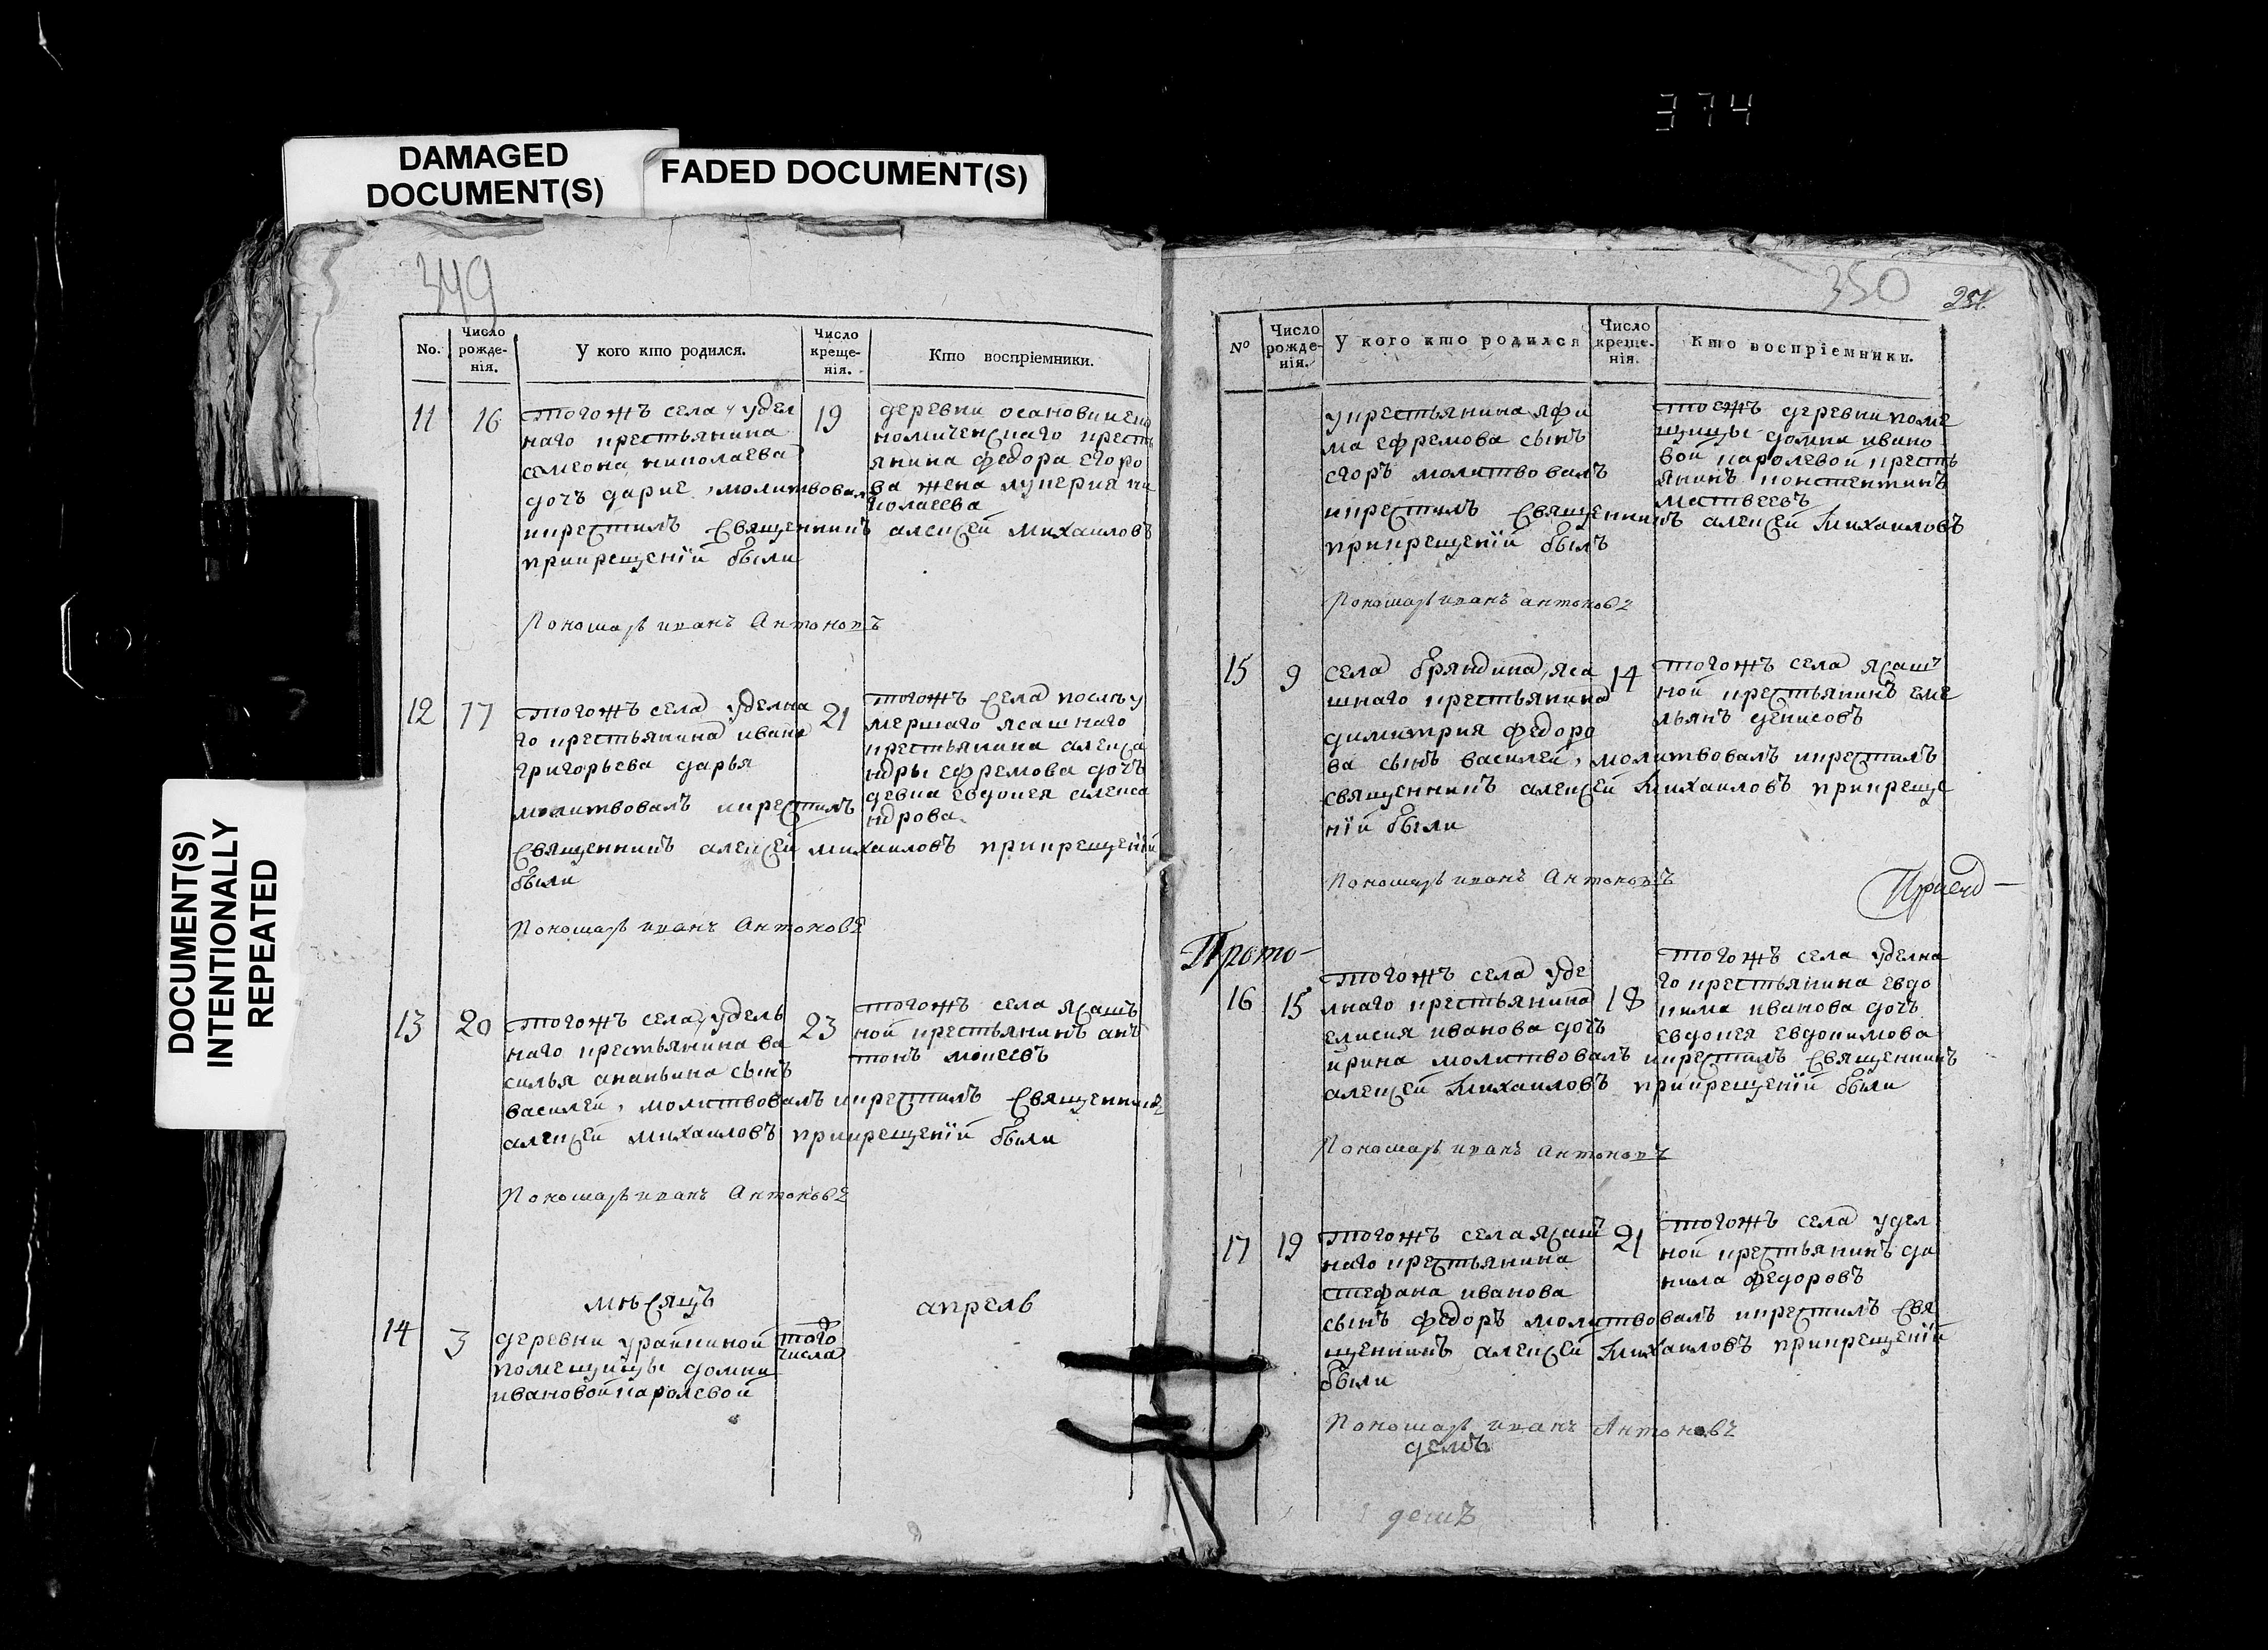 374
DAMAGED
DOCUMENT(S)
FADED DOCUMENT(S)
DOCUMENT(S)
INTENTIONALLY
REPEATED
349
No.
Число
рожде-
нія.
У кого кто родился.
Число
креще-
нія.
Кто воспріемники.
11
16
тогожъ села удел
наго крестьянина
семиона николаева
дочъ дарие, молитвовалъ
икрестилъ священникъ алексей михаиловъ
прикрещенїи были
19
деревни
крестъ
янина федора егоро
ва жена лукерия ни
колаева
Пономарь иванъ Антоновъ
12
17
тогожъ села уделна
го крестьянина ивана
григорьева дарья
молитвовалъ икрестилъ
священникъ алексей михаиловъ прикрещенїи
были
21
тогожъ села послѣ у
мершаго ясашнаго
крестьянина алекса
ндры ефремова дочъ
девка евдокея алекса
ндрова
Пономарь иванъ Антоновъ
13
20
тогожъ села удель
наго крестьянина ва
силья ананьина сынъ
василей, молитвовалъ икрестилъ священникъ
алексей михаиловъ прикрещенїи были
23
тогожъ села ясашъ
ной крестьянинъ ан
тонъ моисеевъ
Пономарь иванъ Антоновъ
мѣсяцъ
апрель
14
3
деревни урайкиной
помещицы домны
ивановой королевой
того
числа
350
251
№
Число
рожде-
нія.
У кого кто родился
Число
креще-
нія.
Кто воспріемники.
укрестьянина яфи
ма ефремова сынъ
егоръ молитвовалъ
икрестилъ священникъ алексей Михаиловъ
прикрещенїи былъ
тоежъ деревни поме
щицы домны ивано
вой королевой кресть
янинъ констентинъ
матвеевъ
Пономарь иванъ антоновъ
15
9
села бряндина, яса
шнаго крестьянина
димитрия федоро
ва сынъ василей, молитвовалъ икрестилъ
священникъ алексей Михаиловъ прикреще
нїи были
14
тогожъ села ясаш
ной крестьянинъ еме
льянъ денисовъ
Пономарь иванъ Антоновъ
Прото-
16
15
тогожъ села уде
лнаго крестьянина
елисия иванова дочъ
ирина молитвовалъ икрестилъ священникъ
алексей Михаиловъ прикрещенїи были
18
тогожъ села уделна
го крестьянина евдо
кима иванова дочъ
евдокея евдокимова
Пономарь иванъ антоновъ
17
19
тогожъ села ясаш
наго крестьянина
стефана иванова
сынъ федоръ молитвовалъ икрестилъ свя
щенникъ алексей Михаиловъ прикрещенїи
были
21
тогожъ села удел
ной крестьянинъ да
нила федоровъ
Пономарь иванъ Антоновъ